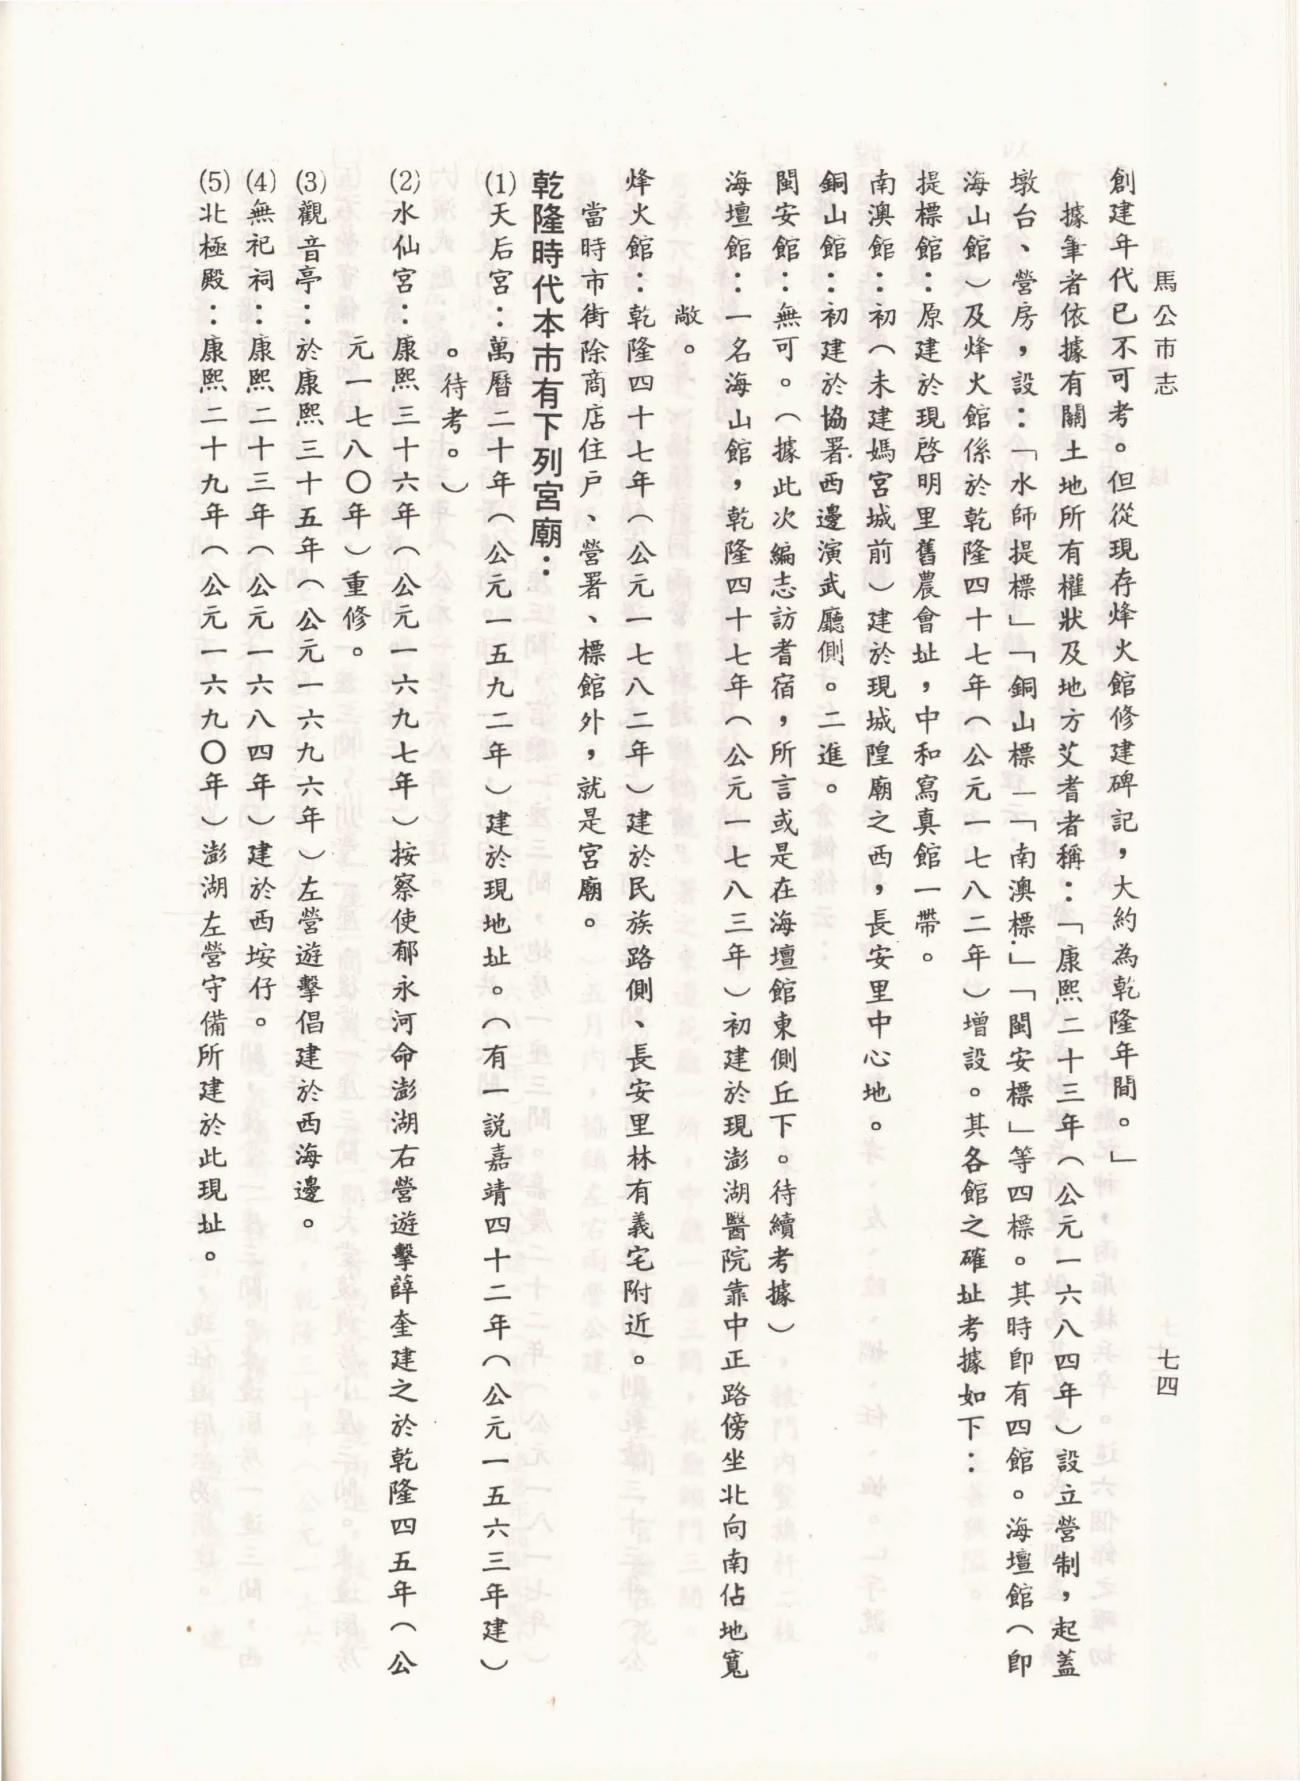 馬公市志
七四
創建年代已不可考。但從現存烽火館修建碑記，大約為乾隆年間。」
據筆者依據有關土地所有權狀及地方艾耆者稱：「康熙二十三年（公元一六八四年）設立營制，起蓋
墩台、營房，設：「水師提標」「銅山標」「南澳標」「閩安標」等四標。其時即有四館。海壇館（即
海山館）及烽火館係於乾隆四十七年（公元一七八二年）增設。其各館之確址考據如下：
提標館：原建於現啓明里舊農會址，中和寫真館一帶。
南澳館：初（未建媽宮城前）建於現城隍廟之西，長安里中心地。
銅山館：初建於協署西邊演武廳側。二進。
閩安館：無可。（據此次編志訪耆宿，所言或是在海壇館東側丘下。待續考據）
海壇館：一名海山館，乾隆四十七年（公元一七八三年）初建於現澎湖醫院靠中正路傍坐北向南佔地寬
敞。
烽火館：乾隆四十七年（公元一七八二年）建於民族路側、長安里林有義宅附近。
當時市街除商店住戶、營署、標館外，就是宮廟。
乾隆時代本市有下列宮廟：
(1)天后宮：萬曆二十年（公元一五九二年）建於現地址。（有一説嘉靖四十二年（公元一五六三年建）
。待考。）
(2)水仙宮：康熙三十六年（公元一六九七年）按察使郁永河命澎湖右營遊擊薛奎建之於乾隆四五年（公
元一七八〇年）重修。
(3)觀音亭：於康熙三十五年（公元一六九六年）左營遊擊倡建於西海邊。
(4)無祀祠：康熙二十三年（公元一六八四年）建於西垵仔。
(5)北極殿：康熙二十九年（公元一六九〇年）澎湖左營守備所建於此現址。